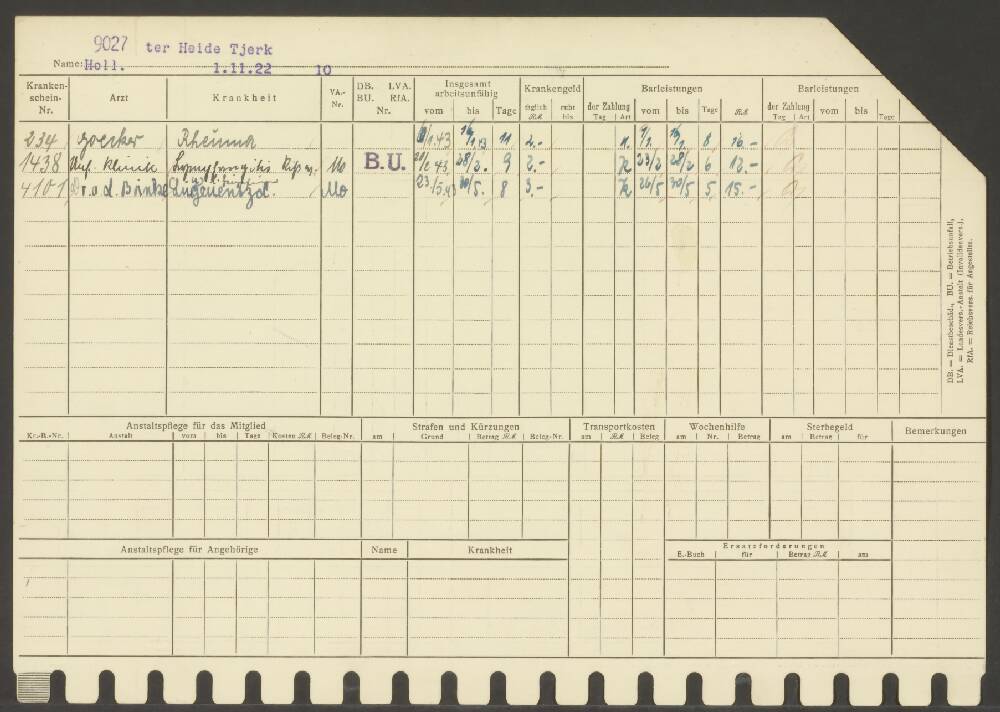 9027 ter Heide Tjerk
Name: Holl. 1.11.22 10
Kranken-schein-Nr. Arzt Krankheit VA.-Nr. DB. LVA. BU. RfA. Nr. Insgesamt arbeitsunfähig Krankengeld Barleistungen Barleistungen
vom bis Tage täglich RM. ruht bis der Zahlung Tag Art vom bis Tage RM. der Zahlung Tag Art vom bis Tage
234 Rheuma 1.43 11 2.- 8 16.-
1438 Klinik B.U. 28/2. 9 2.- 23/2 28/2 6 12.-
4101 Dr. v. d. 23/5.43 30/5. 8 3.- 26/5 30/5 5 15.-
DB. = Dienstbeschäd., BU. = Betriebsunfall,
LVA. = Landesvers.-Anstalt (Invalidenvers.),
RfA. = Reichsvers. für Angestellte.
Anstaltspflege für das Mitglied Strafen und Kürzungen Transportkosten Wochenhilfe Sterbegeld Bemerkungen
Kr.-B.-Nr. Anstalt vom bis Tage Kosten RM Beleg-Nr. am Grund Betrag RM Beleg-Nr. am RM Beleg am Nr. Betrag am Betrag für
Anstaltspflege für Angehörige Name Krankheit Ersatzforderungen
E.-Buch für Betrag RM am